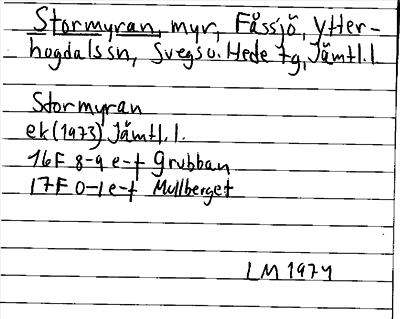 Stormyran, myr, Fåssjö, Ytter-
hogdalssn, Svegs o. Hede tg, Jämtl. l
Stormyran
ek (1973) Jämtl. l.
16F 8-9 e-f Grubban
17F 0-1 e-f Mullberget
LM 1974